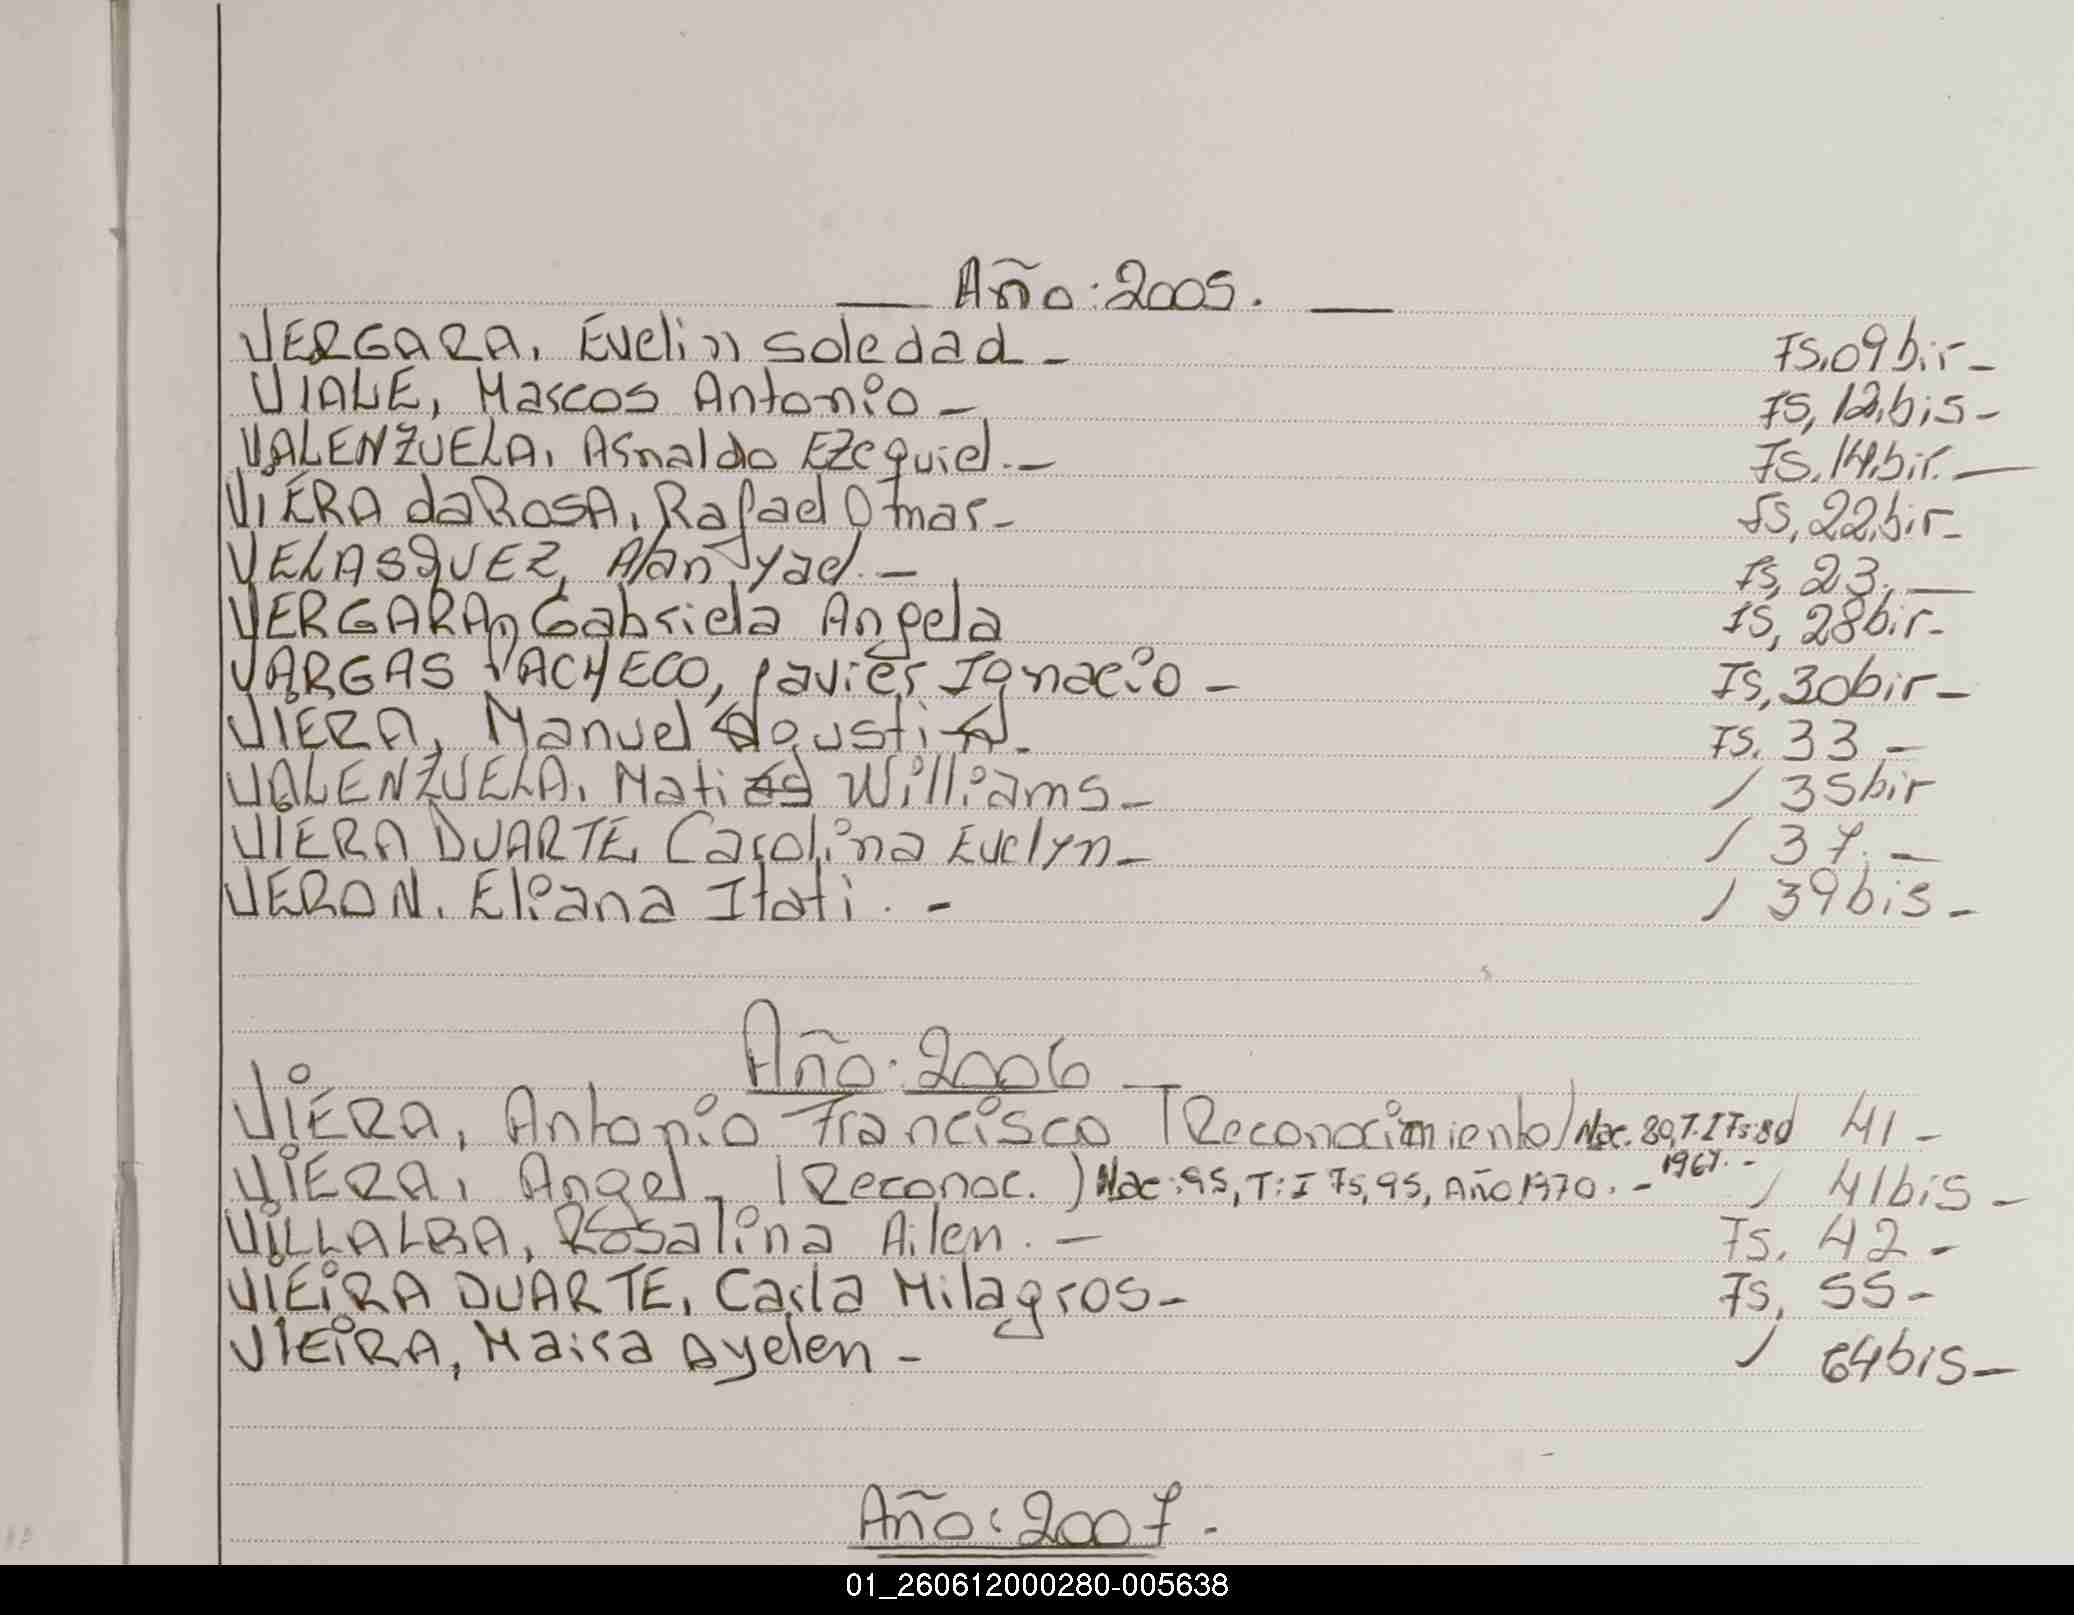 Año: 2005.
VERGARA, Evelin Soledad - Fs, 09 bis -
VIALE, Marcos Antonio - Fs, 12, bis -
VALENZUELA, Arnaldo Ezequiel. - Fs. 14, bis. -
ViERA da ROSA, Rafael Omar - Fs, 22, bis -
VELASQUEZ, Alan yad. - Fs, 23. -
VERGARA, Gabriela Angela Fs, 28 bis -
VARGAS PACHECO, Javier Ignacio - Fs, 30 bis -
VIERA, Manuel Agustin. Fs. 33 -
VALENZUELA, Matias Williams - / 35 bis
VIERA DUARTE, Carolina Evelyn - / 37. -
VERON, Eliana Itati. - / 39 bis -
Año: 2006 -
ViERA, Antonio Francisco (Reconocimiento) Nac. 80, T. I Fs: 80 41 -
1967. -
ViERA, Angel, (Reconoc.) Nac: 95, T: I Fs, 95, Año 1970. - / 41 bis -
ViLLALBA, Rosalina Ailen. - Fs. 42 -
VIEiRA DUARTE, Carla Milagros - Fs, 55 -
VIEiRA, Maira Ayelen - / 64 bis -
Año: 2007. -
01_260612000280-005638